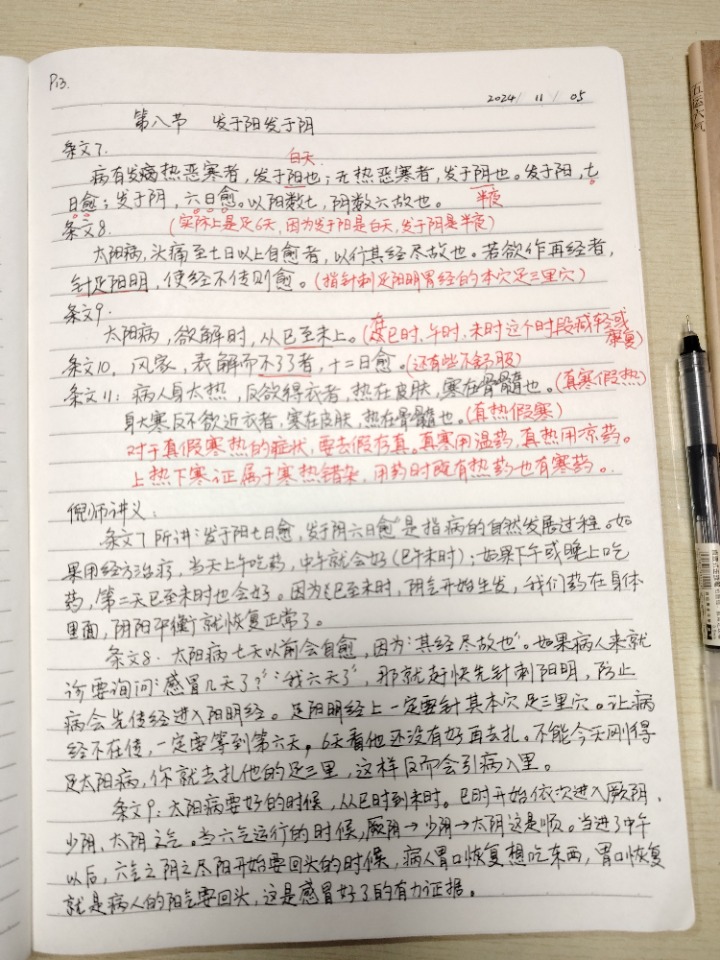 P13.
2024/ 11 / 05
第八节 发于阳发于阴
条文7.
白天
病有发热恶寒者，发于阳也；无热恶寒者，发于阴也。发于阳，七
日愈；发于阴，六日愈。以阳数七，阴数六故也。 半夜
条文8. （实际上是足6天，因为发于阳是白天，发于阴是半夜）
太阳病，头痛至七日以上自愈者，以行其经尽故也。若欲作再经者，
针足阳明，使经不传则愈。（指针刺足阳明胃经的本穴足三里穴）
条文9.
太阳病，欲解时，从巳至未上。（在巳时、午时、未时这个时段减轻或
康复）
条文10. 风家，表解而不了了者，十二日愈。（还有些不舒服）
条文11：病人身大热，反欲得衣者，热在皮肤，寒在骨髓也。（真寒假热）
身大寒反不欲近衣者，寒在皮肤，热在骨髓也。（真热假寒）
对于真假寒热的症状，要去假存真。真寒用温药，真热用凉药。
上热下寒证属于寒热错杂，用药时既有热药也有寒药。
倪师讲义：
条文7所讲：发于阳七日愈，发于阴六日愈"是指病的自然发展过程。如
果用经方治疗，当天上午吃药，中午就会好（巳午未时）；如果下午或晚上吃
药，第二天巳至未时也会好。因为巳至未时，阴气开始生发，我们药在身体
里面，阴阳平衡就恢复正常了。
条文8. 太阳病七天以前会自愈，因为："其经尽故也"。如果病人来就
诊要询问："感冒几天了？""我六天了"，那就赶快先针刺阳明，防止
病会先传经进入阳明经。足阳明经上一定要针其本穴足三里穴。让病
经不在传，一定要等到第六天。6天看他还没有好再去扎。不能今天刚得
足太阳病，你就去扎他的足三里，这样反而会引病入里。
条文9：太阳病要好的时候，从巳时到未时。巳时开始依次进入厥阴、
少阴、太阴之气。当六气运行的时候，厥阴→少阴→太阴这是顺。当进了中午
以后，六气之阴之尽阳开始要回头的时候，病人胃口恢复想吃东西，胃口恢复
就是病人的阳气要回头，这是感冒好了的有力证据。
五运六气